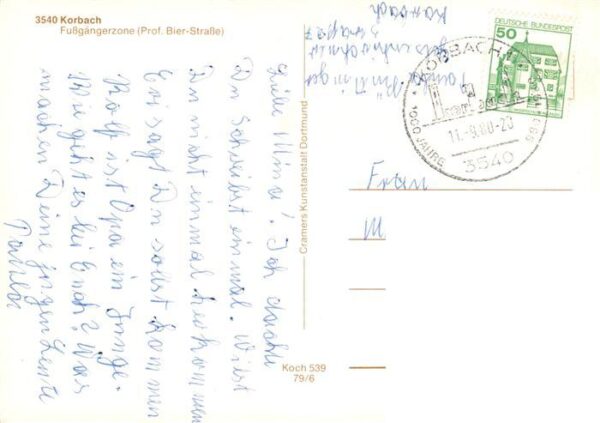 3540 Korbach
Fußgängerzone (Prof. Bier-Straße)
Liebe Mina! Ich dachte
Du schreibst einmal. Wirst
Du nicht einmal herkommen
Er sagt Du sollst kommen
Rolf ist Opa ein Junge.
Wie geht es bei Euch? Was
machen Deine jungen Leute
Cramers Kunstanstalt Dortmund
Koch 539
79/6
DEUTSCHE BUNDESPOST
50
KORBACH 1
1000 JAHRE
11.-9.80-20
3540
Frau
M